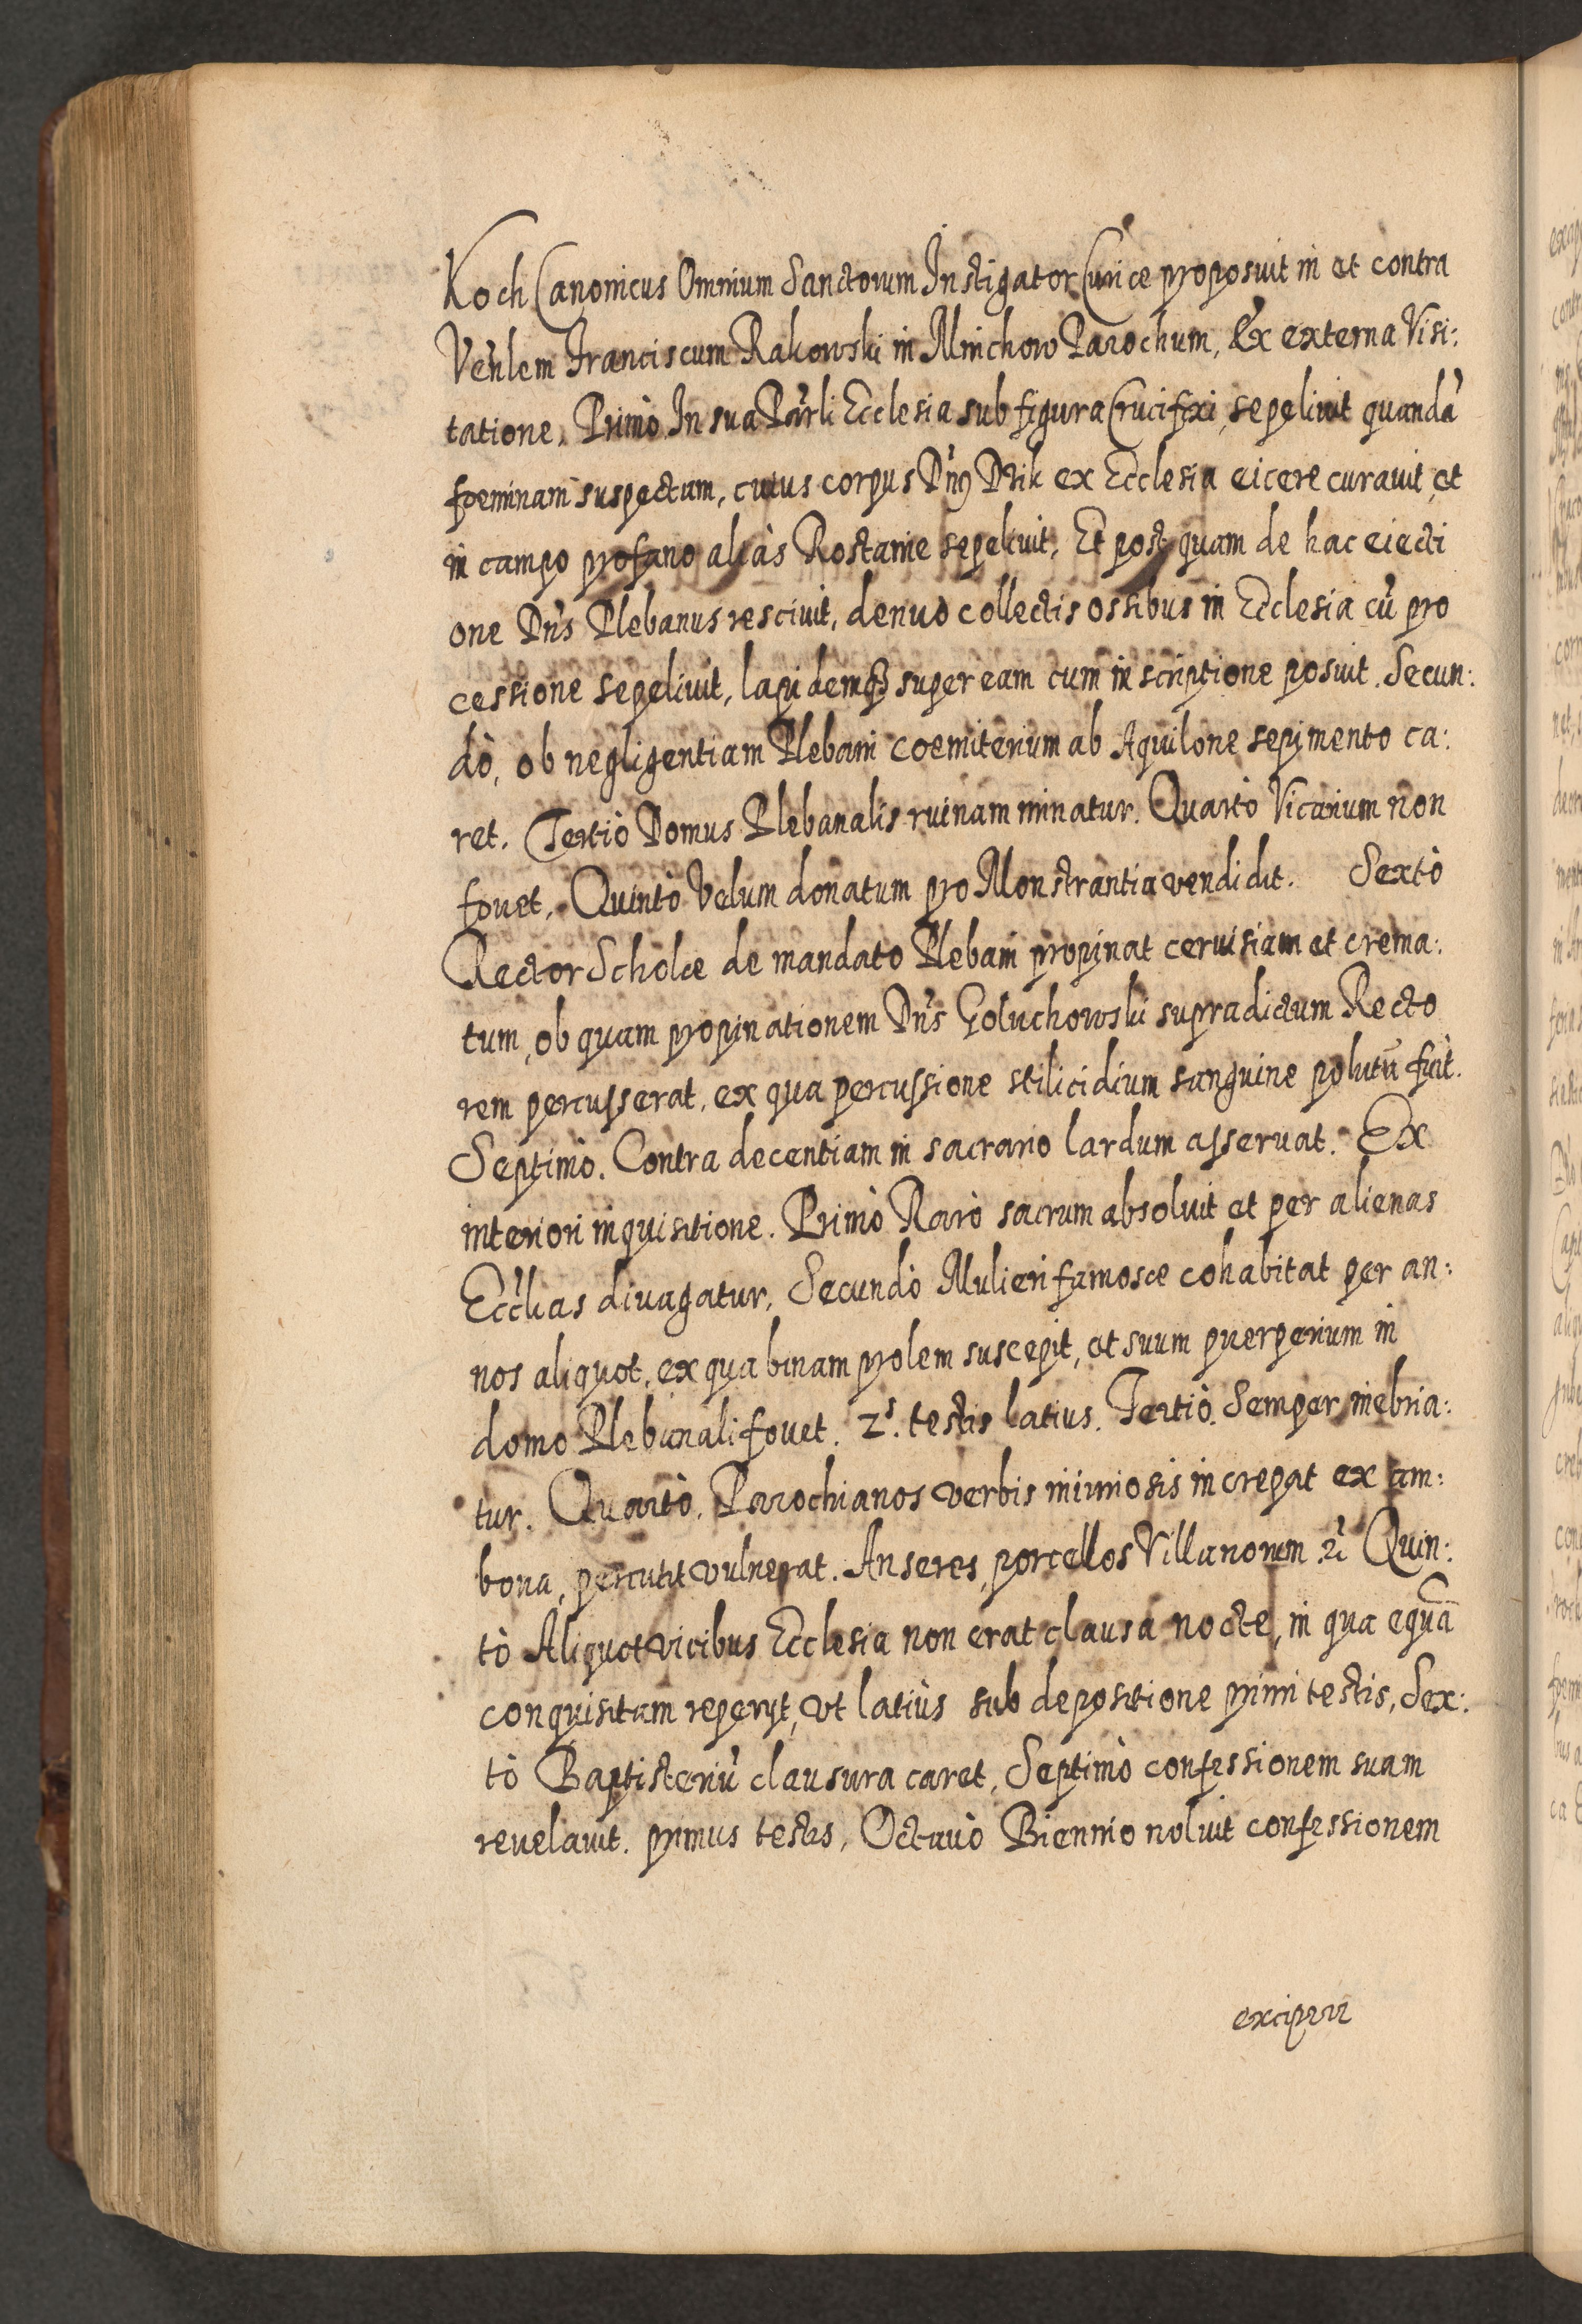 Koch Canonicus Omnium Sanctorum Instigator Curiæ proposuit in et contra
Veñlem Franciscum Rakowski in Minchow Parochum, Ex externa Visi:
tatione, Primò In sua Parli Ecclesia sub figura Crucifixi, sepeliuit quandã
fœminam suspectam, cuius corpus Dñs Dzik ex Ecclesia eicere curauit, et
in campo profano aliàs Rostanie sepeliuit, Et post quam de hac eiecti
one Dñs Plebanus resciuit, denuo collectis ossibus in Ecclesia cũ pro
cessione sepeliuit, lapidemq3 super eam cum inscriptione posuit. Secun:
dò, ob negligentiam Plebani coemiterium ab Aquilone sepimento ca:
ret. Tertiò Domus Plebanalis ruinam minatur. Quartò Vicarium non
fouet, Quintò Velum donatum pro Monstrantia vendidit. Sextò
Rector Scholæ de mandato Plebani propinat ceruisiam et crema:
tum, ob quam propinationem Dñs Goluchowski supradictum Recto
rem percusserat, ex qua percussione stilicidium sanguine polutũ fuit.
Septimò. Contra decentiam in sacrario lardum asseruat. Ex
interiori inquisitione. Primò Rarò sacrum absoluit et per alienas
Ecclias diuagatur, Secundò Mulieri famosæ cohabitat per an:
nos aliquot, ex qua binam prolem suscepit, et suum puerperium in
domo Plebanali fouet. 2s. testis latius. Tertiò. Semper inebria:
tur. Quartò. Parochianos verbis iniuriosis increpat ex am:
bona, percutit vulnerat. Anseres, porcellos Villanorum Quin:
tò Aliquot vicibus Ecclesia non erat clausa nocte, in qua equã
conquisitam reperyt, vt latiùs sub depositione primi testis, Sex:
tò Baptisteriũ clausura caret, Septimò confessionem suam
reuelauit. primus testis, Octauò Biennio noluit confessionem
excipere